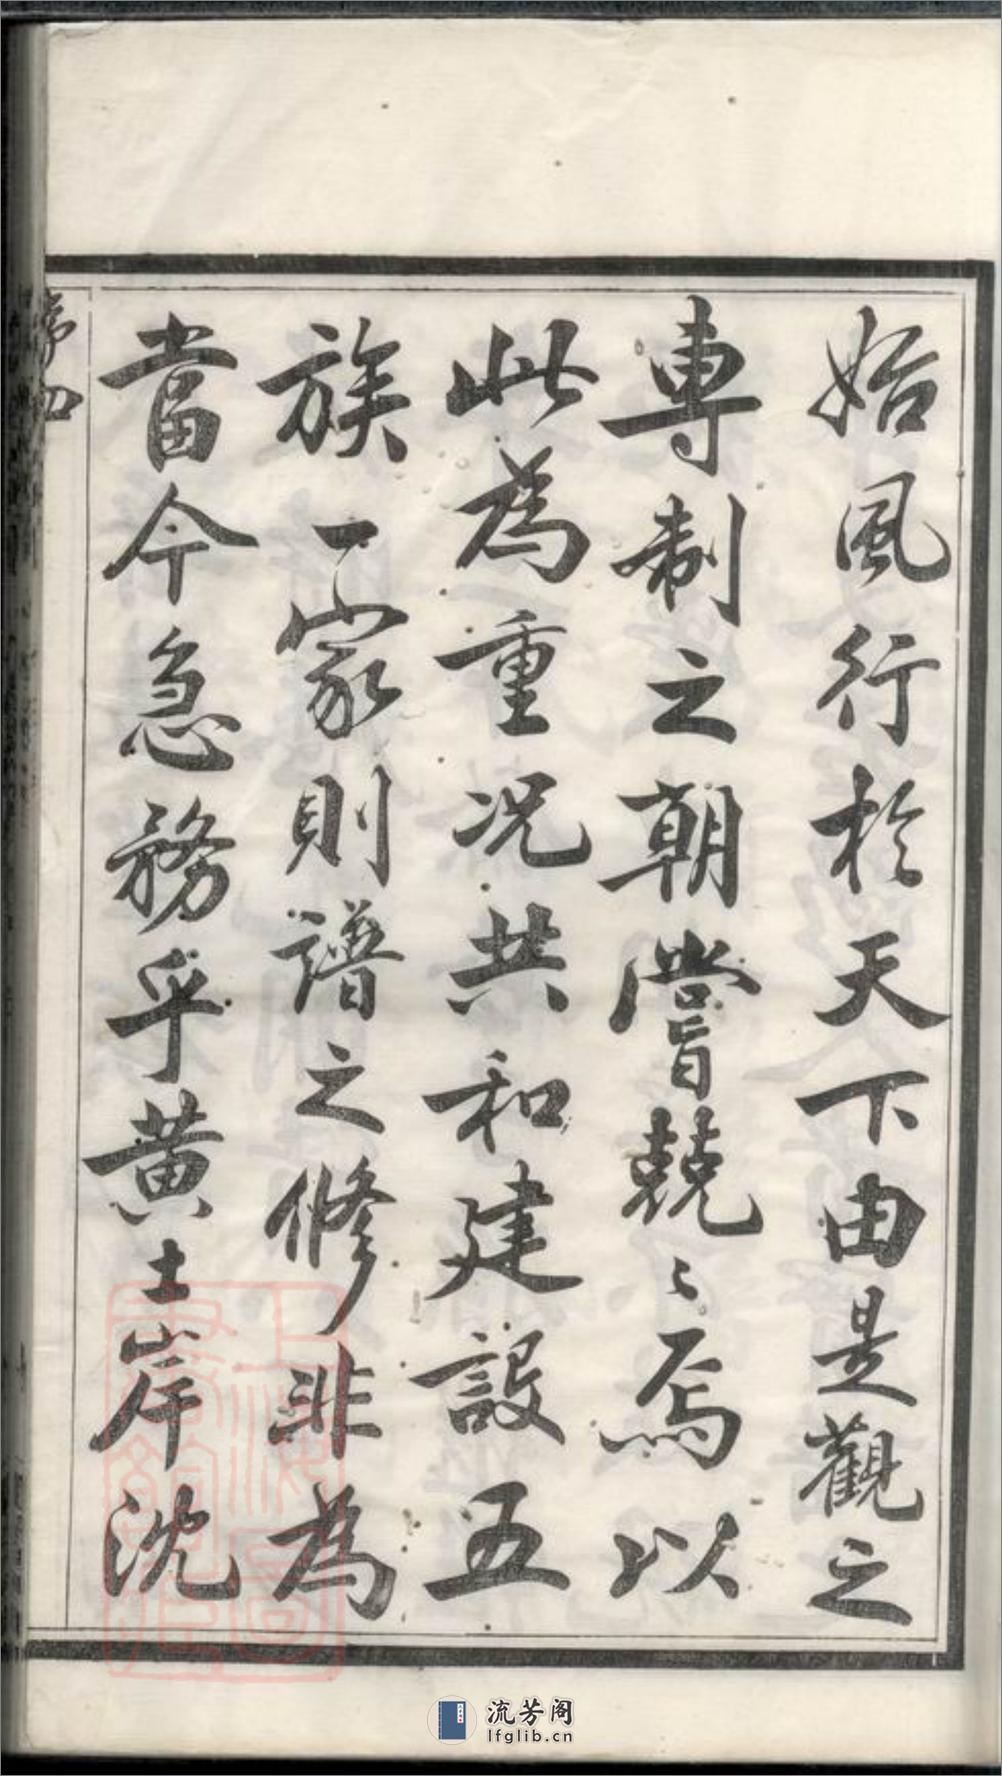 始風行於天下由是觀之
專制之朝嘗兢〻焉以
此為重況共和建設五
族一家則譜之修非為
當今急務乎黃土岸沈
序四
上海圖書館藏
流芳阁
lfglib.cn